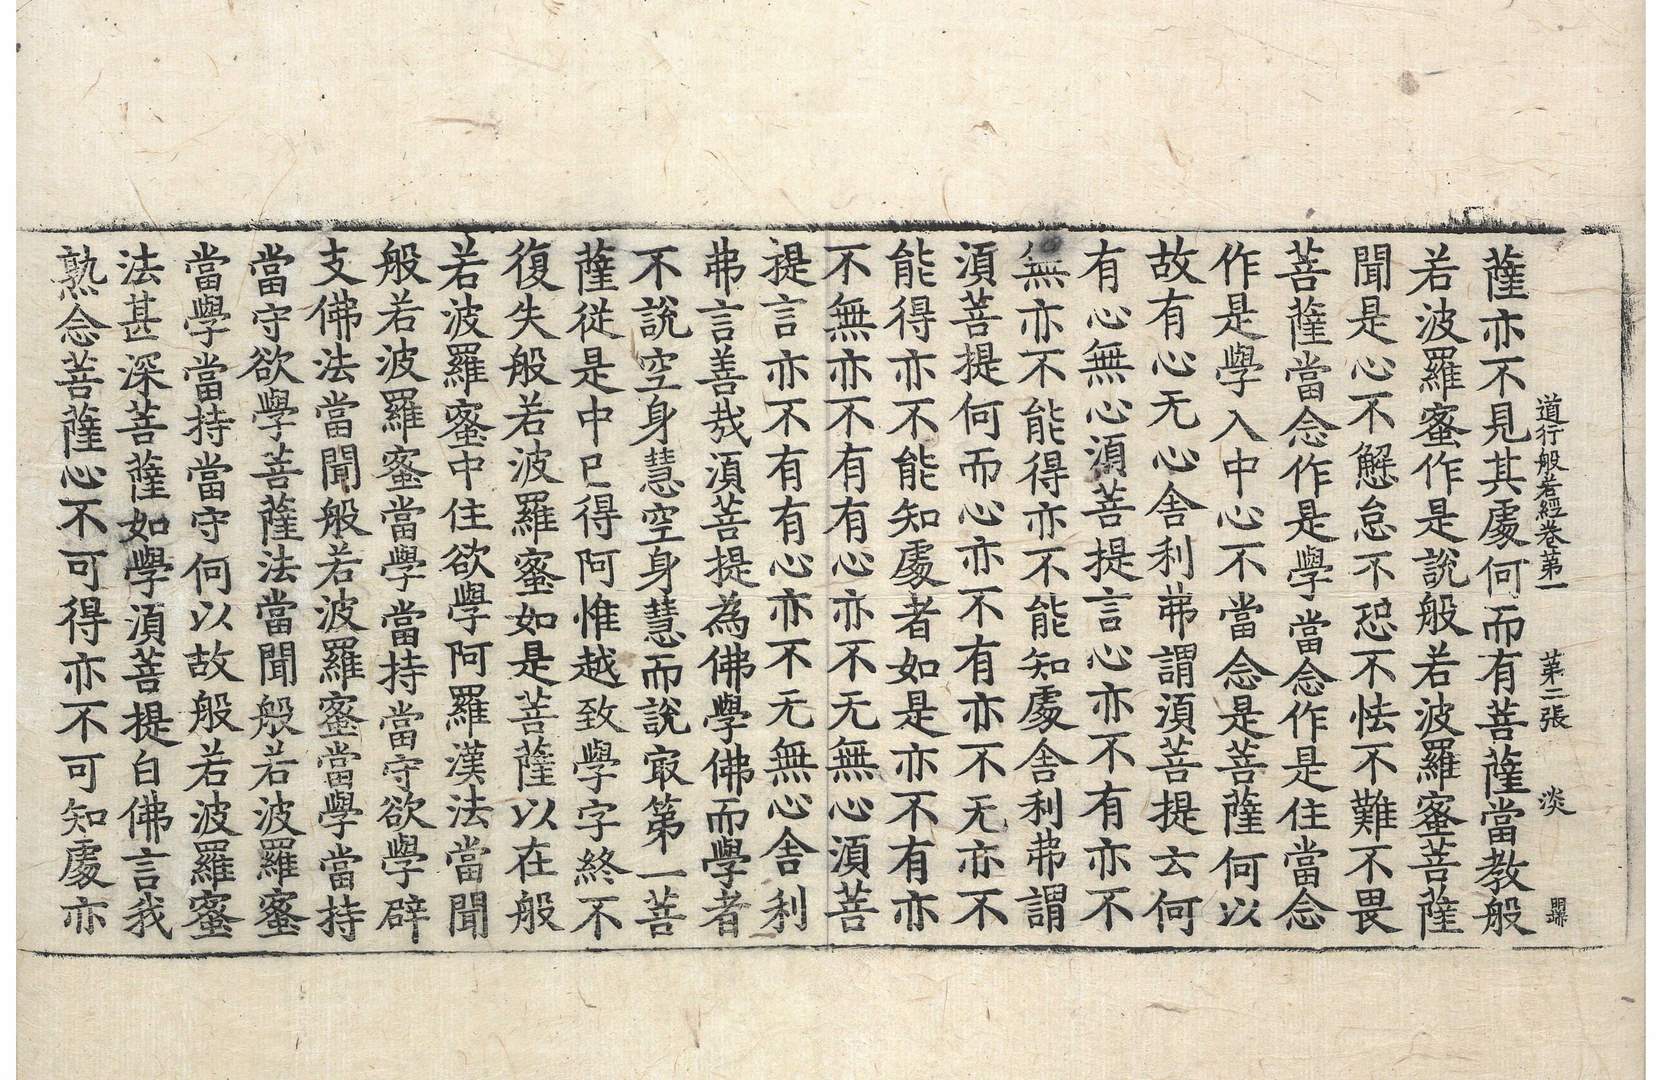 道行般若經卷第一 第二張 淡
薩亦不見其處何而有菩薩當教般
若波羅蜜作是說般若波羅蜜菩薩
聞是心不懈怠不恐不怯不難不畏
菩薩當念作是學當念作是住當念
作是學入中心不當念是菩薩何以
故有心无心舍利弗謂須菩提云何
有心無心須菩提言心亦不有亦不
無亦不能得亦不能知處舍利弗謂
須菩提何而心亦不有亦不无亦不
能得亦不能知處者如是亦不有亦
不無亦不有有心亦不无無心須菩
提言亦不有有心亦不无無心舍利
弗言善哉須菩提為佛學佛而學者
不說空身慧空身慧而說冣第一菩
薩從是中已得阿惟越致學字終不
復失般若波羅蜜如是菩薩以在般
若波羅蜜中住欲學阿羅漢法當聞
般若波羅蜜當學當持當守欲學辟
支佛法當聞般若波羅蜜當學當持
當守欲學菩薩法當聞般若波羅蜜
當學當持當守何以故般若波羅蜜
法甚深菩薩如學須菩提白佛言我
熟念菩薩心不可得亦不可知處亦